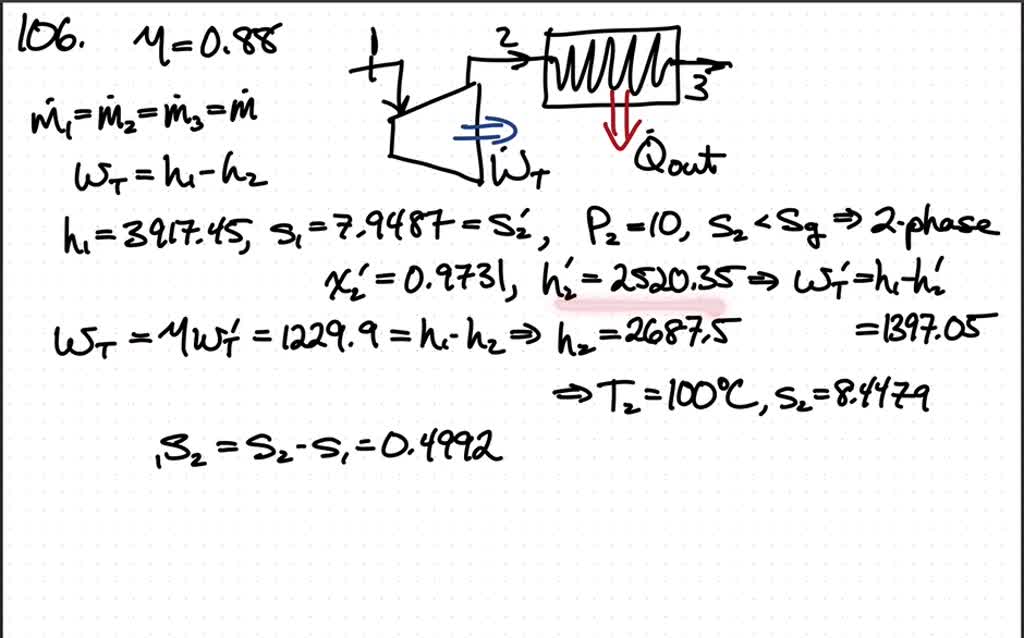 106. η = 0.88
1 2 3
ṁ₁ = ṁ₂ = ṁ₃ = ṁ
Ẇ_T Q̇out
w_T = h₁ - h₂
h₁ = 3917.45, s₁ = 7.9487 = s₂', P₂ = 10, s₂ < sg ⇒ 2-phase
x₂' = 0.9731, h₂' = 2520.35 ⇒ w_T' = h₁ - h₂'
w_T = ηw_T' = 1229.9 = h₁ - h₂ ⇒ h₂ = 2687.5 = 1397.05
⇒ T₂ = 100°C, s₂ = 8.4479
₁S₂ = s₂ - s₁ = 0.4992